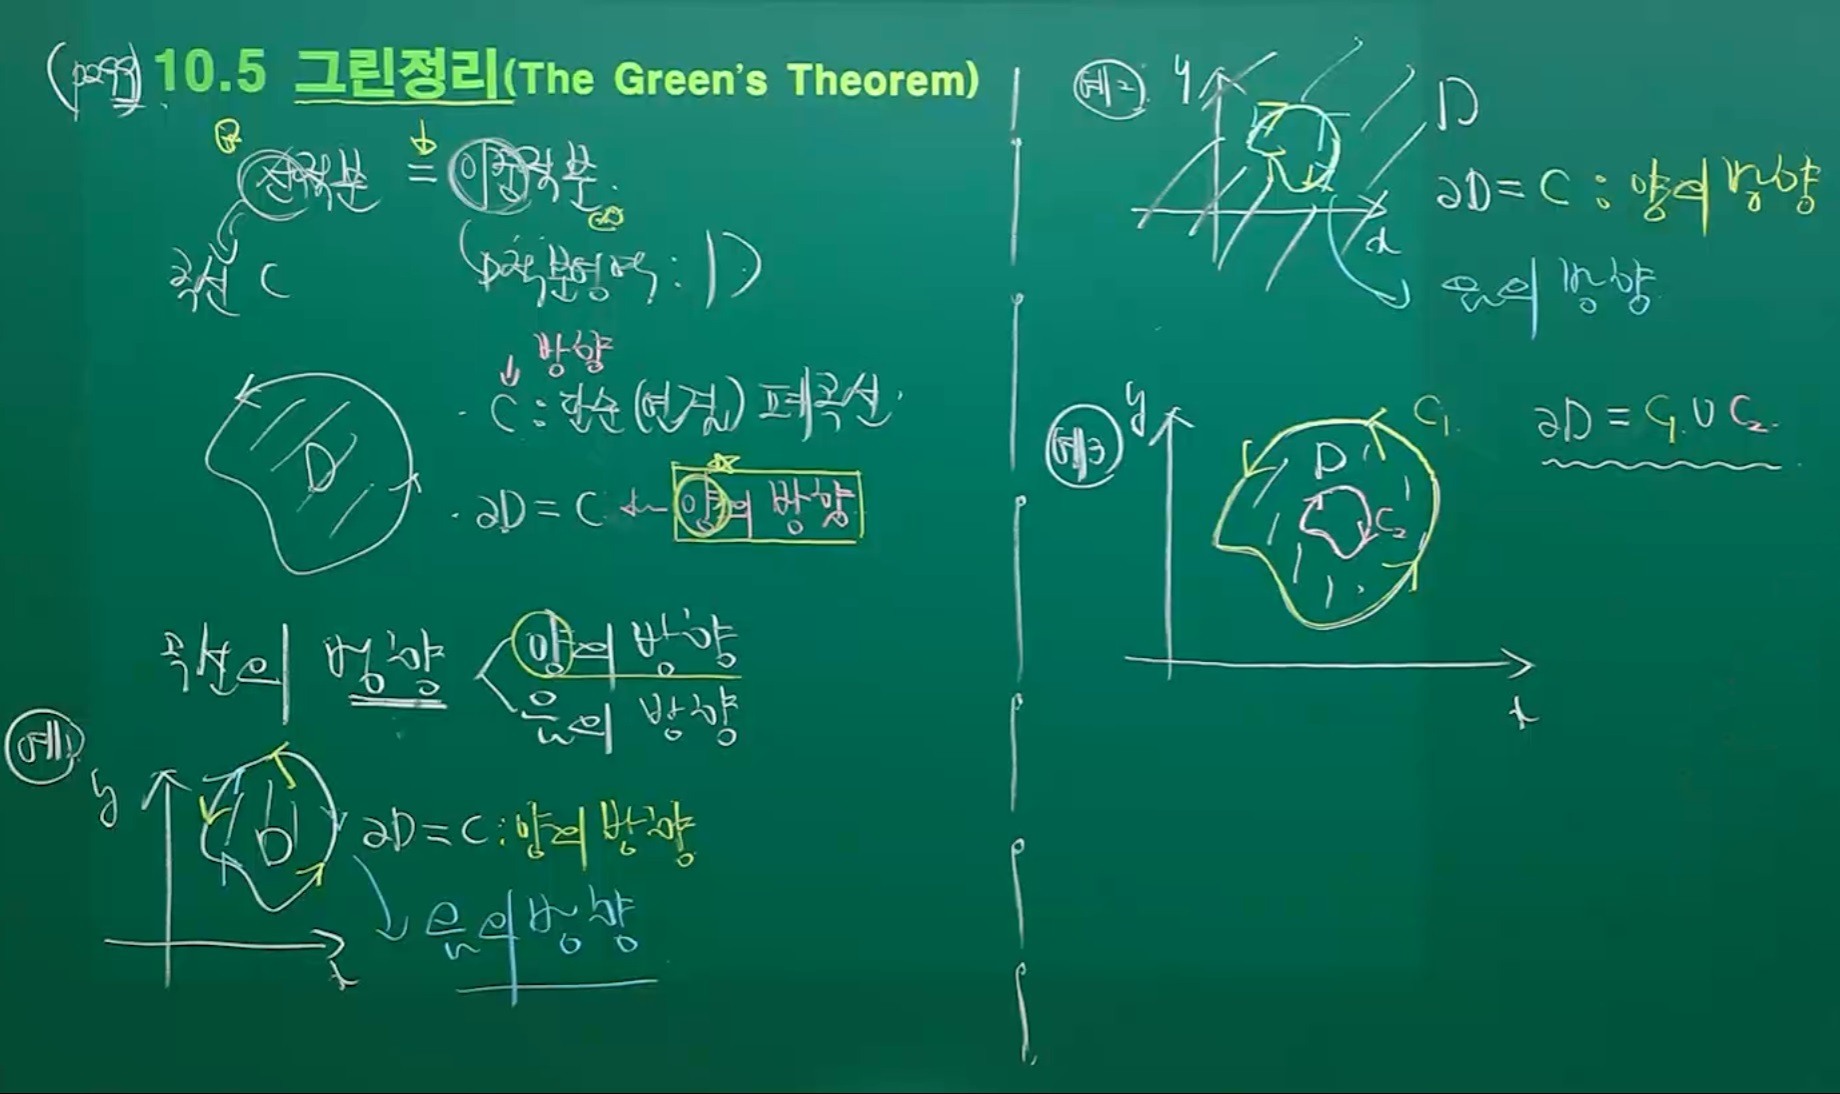 (p299) 10.5 그린정리(The Green's Theorem)
선적분 = 이중적분.
곡선 C
적분영역 : D
방향
· C : 단순 (연결) 폐곡선.
D
· ∂D = C ← 양의 방향
곡선의 방향
양의 방향
음의 방향
예1
y
D
x
∂D = C : 양의 방향
음의 방향
예2
y
D
x
∂D = C : 양의 방향
음의 방향
예3
y
C₁
D
C₂
x
∂D = C₁ ∪ C₂.